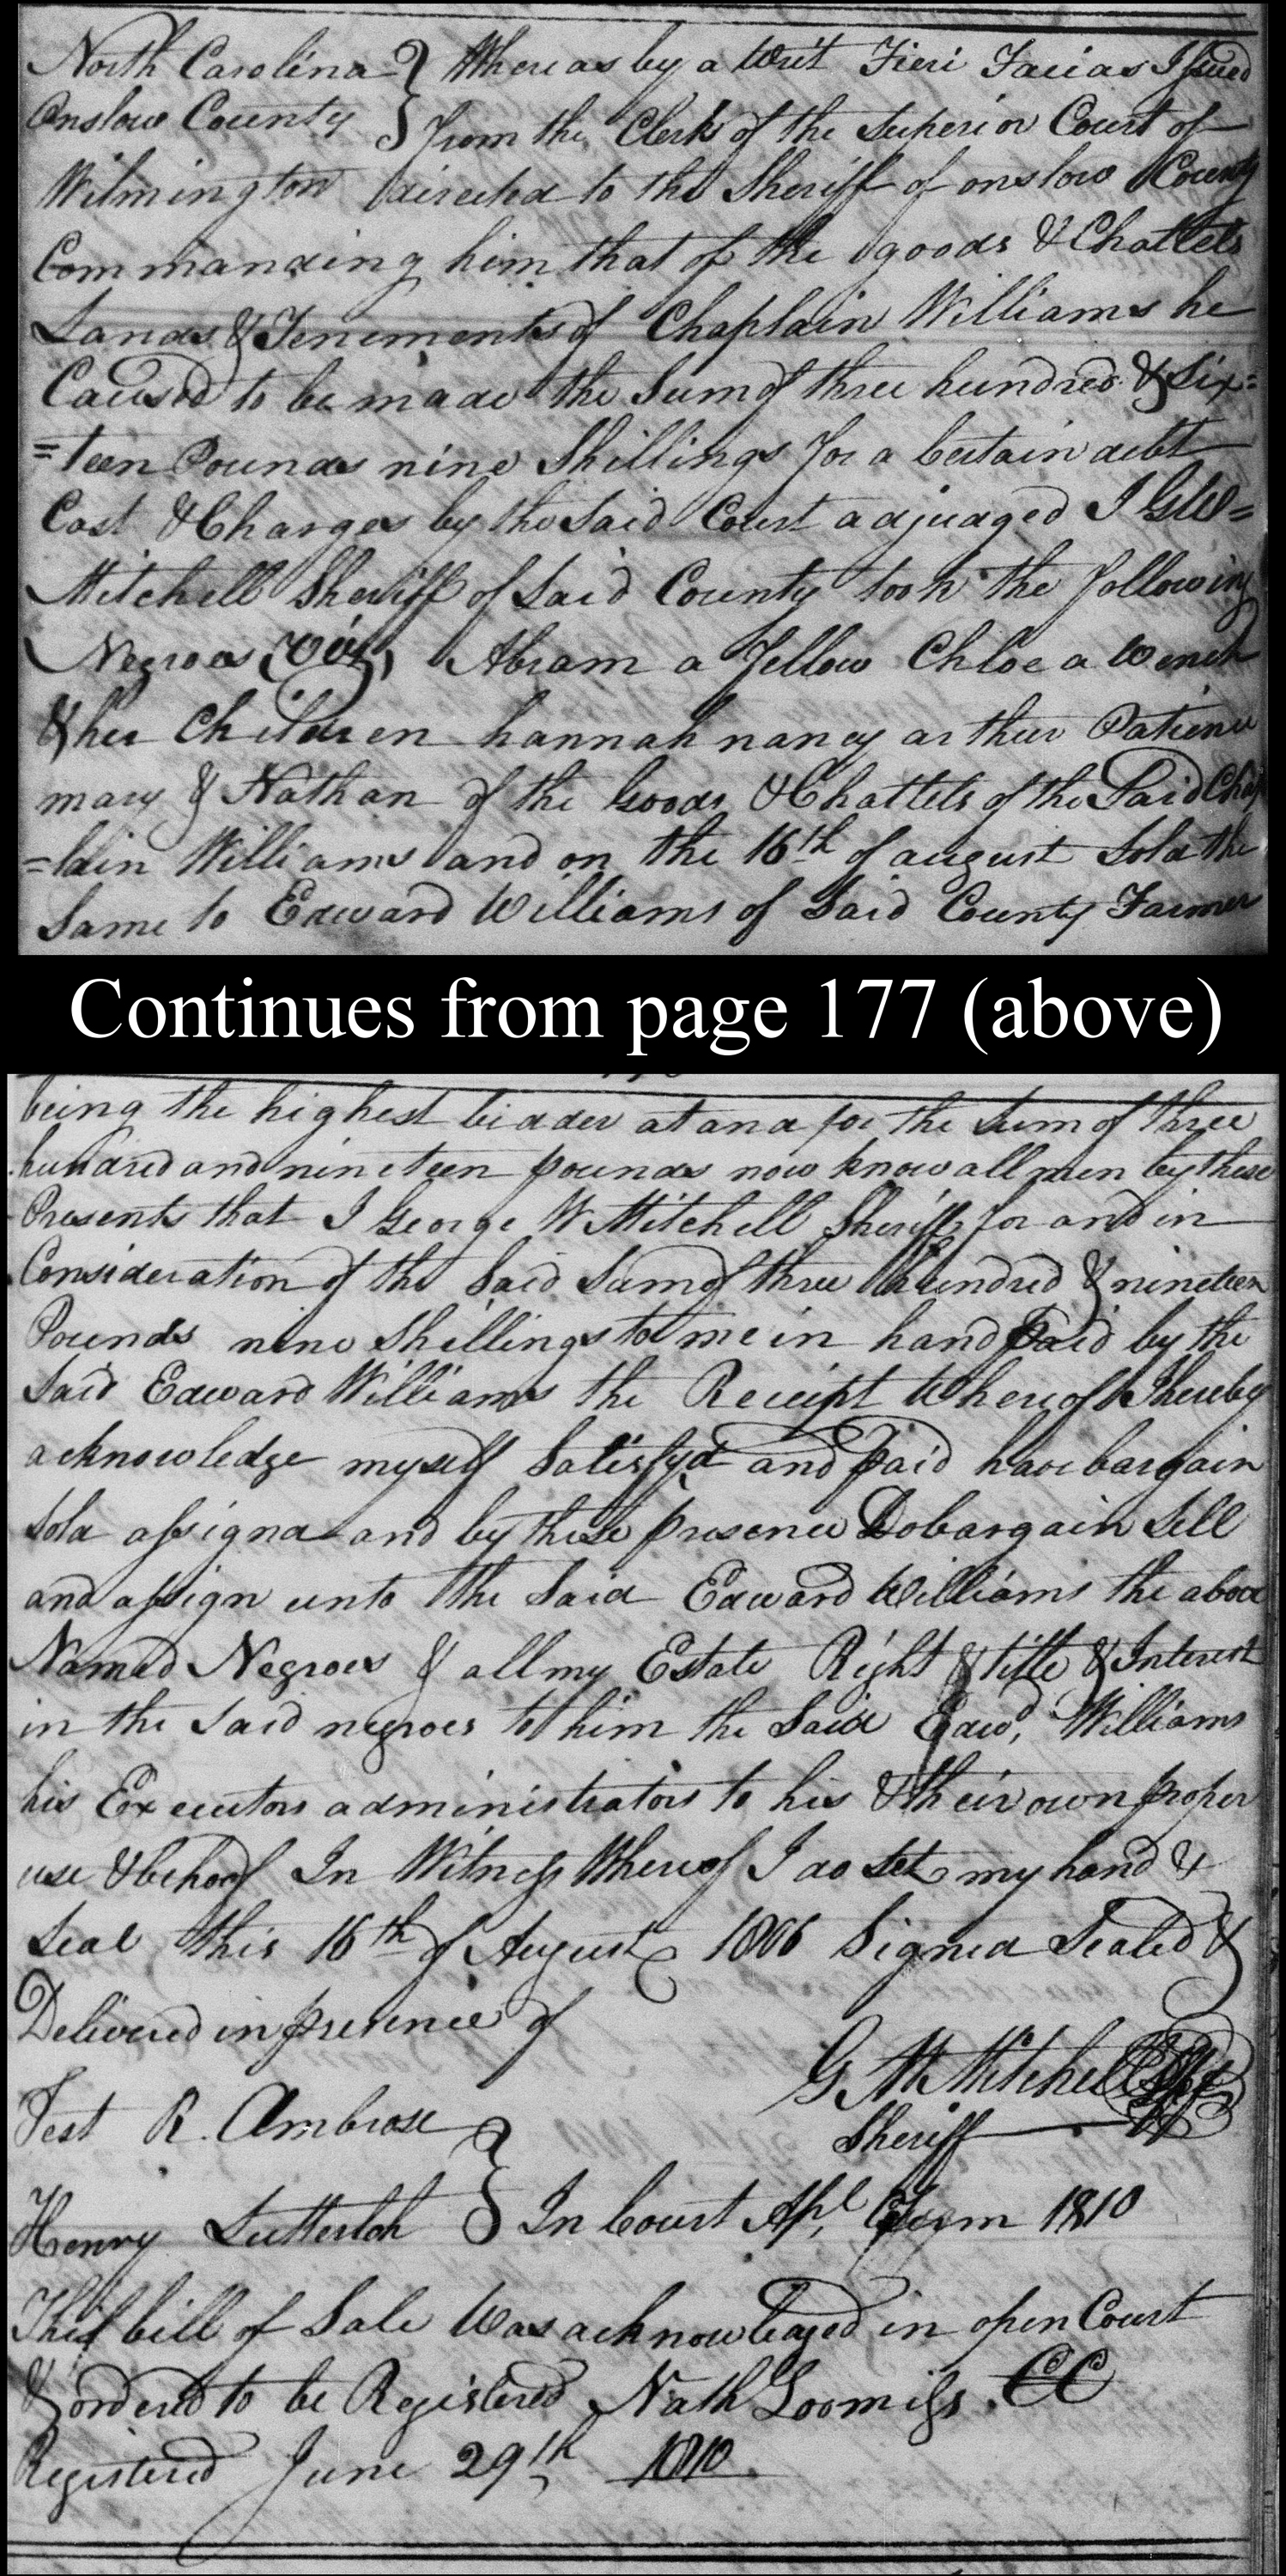 North Carolina } Whereas by a Writ Fieri Facias Issued
Onslow County } from the Clerk of the Superior Court of
Wilmington directed to the Sheriff of onslow County
Commanding him that of the goods & Chattels
Lands & Tenements of Chaplain Williams he
Caused to be made the Sum of three hundred & Six=
=teen Pounds nine Shillings for a Certain debt
Cost & Charges by the Said Court adjudged I
Mitchell Sheriff of Said County took the following
Negroes (Viz) Abram a fellow Chloe a Wench
& her Children hannah nancy arther Patience
mary & Nathan of the Goods & Chattels of the Said Chap
=lain Williams and on the 16th of august Sold the
Same to Edward Williams of Said County Farmer
Continues from page 177 (above)
being the highest bidder at and for the Sum of three
hundred and nineteen pounds now know all men by these
Presents that I George W Mitchell Sheriff for and in
Consideration of the Said Sum of three hundred & nineteen
Pounds nine Shillings to me in hand Paid by the
Said Edward Williams the Receipt Whereof I hereby
acknowledge myself Satisfyd and paid have bargain
Sold assignd and by these presence Do bargain Sell
and assign unto the Said Edward Williams the above
Named Negroes & all my Estate Right & title & Interest
in the Said negroes to him the Said Edwd, Williams
his Executors administrators to his & their own proper
use & behoof In Witness Whereof I do Set my hand &
Seal this 16th of August 1806 Signed Sealed &
Delivered in presence of
G W Mitchell
Sheriff
Test R. Ambrose }
Henry } In Court Apl, Term 1810
This bill of Sale Was acknowledged in open Court
& ordered to be Registered Nath Loomiss CC
Registered June 29th, 1810.